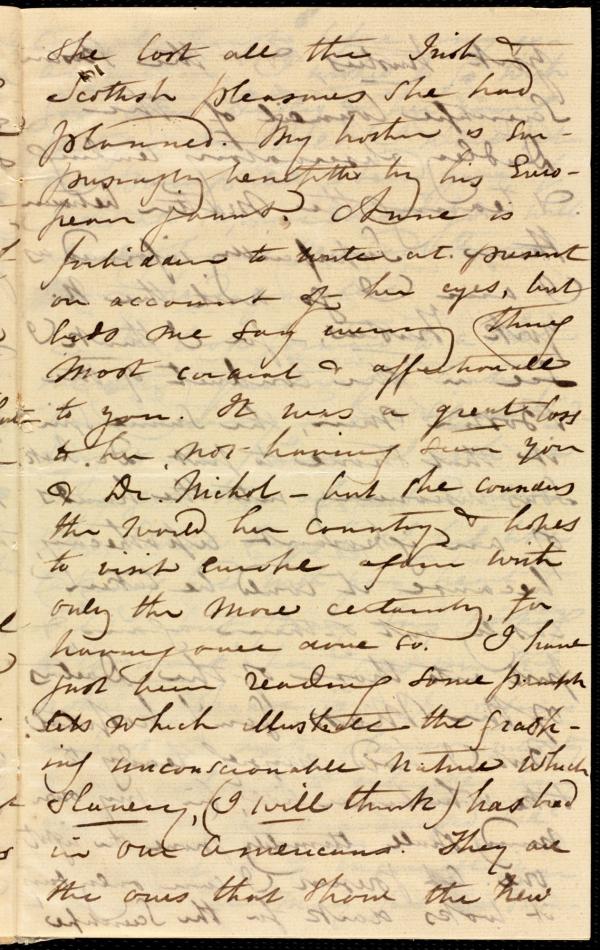 She lost all the Irish &
Scottish pleasures she had
planned. My brother is sur-
prisingly benefitted by his Euro-
pean jaunt. Anne is
forbidden to write at present
on account of her eyes, but
bids me say every thing
most cordial & affectionate
to you. It was a great loss
to her, not having seen you
& Dr. Nichol - but she considers
the world her country & hopes
to visit Europe again with
only the more certainty, for
having once done so. I have
just been reading some pamph
lets which illustrate the grasp-
ing unconscionable nature which
Slavery, (I will think) has bred
in our Americans. They are
the ones that show the New